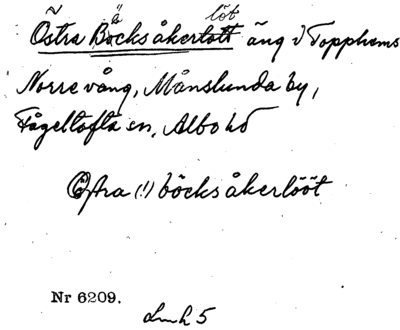 ä löt
Östra Böcksåkerlott äng i Topphems
Norre vång, Månslunda by,
Fågeltofta sn, Albo hd
Östra (!) böcksåkerlööt
Nr 6209.
Lmh 5